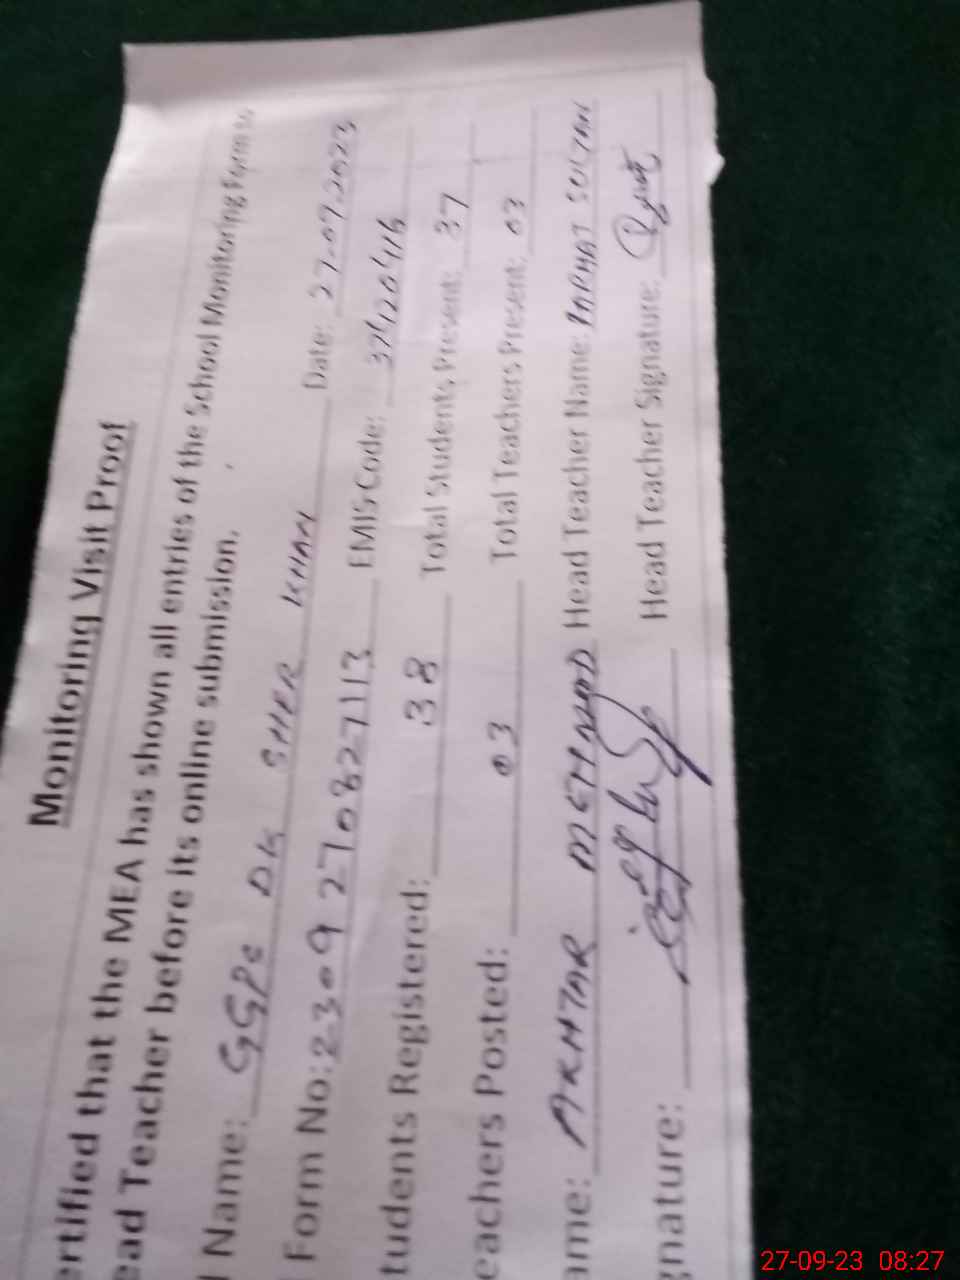 Monitoring Visit Proof
ertified that the MEA has shown all entries of the School Monitoring Form to
ead Teacher before its online submission.
l Name: GGPS DK SHER KHAN Date: 27.09.2023
Form No: 2309 270827113 EMIS Code:
tudents Registered: 38 Total Students Present: 37
eachers Posted: 03 Total Teachers Present: 03
ame: AKHTAR MEHMOOD Head Teacher Name: SULTAN
gnature: Head Teacher Signature:
27-09-23 08:27